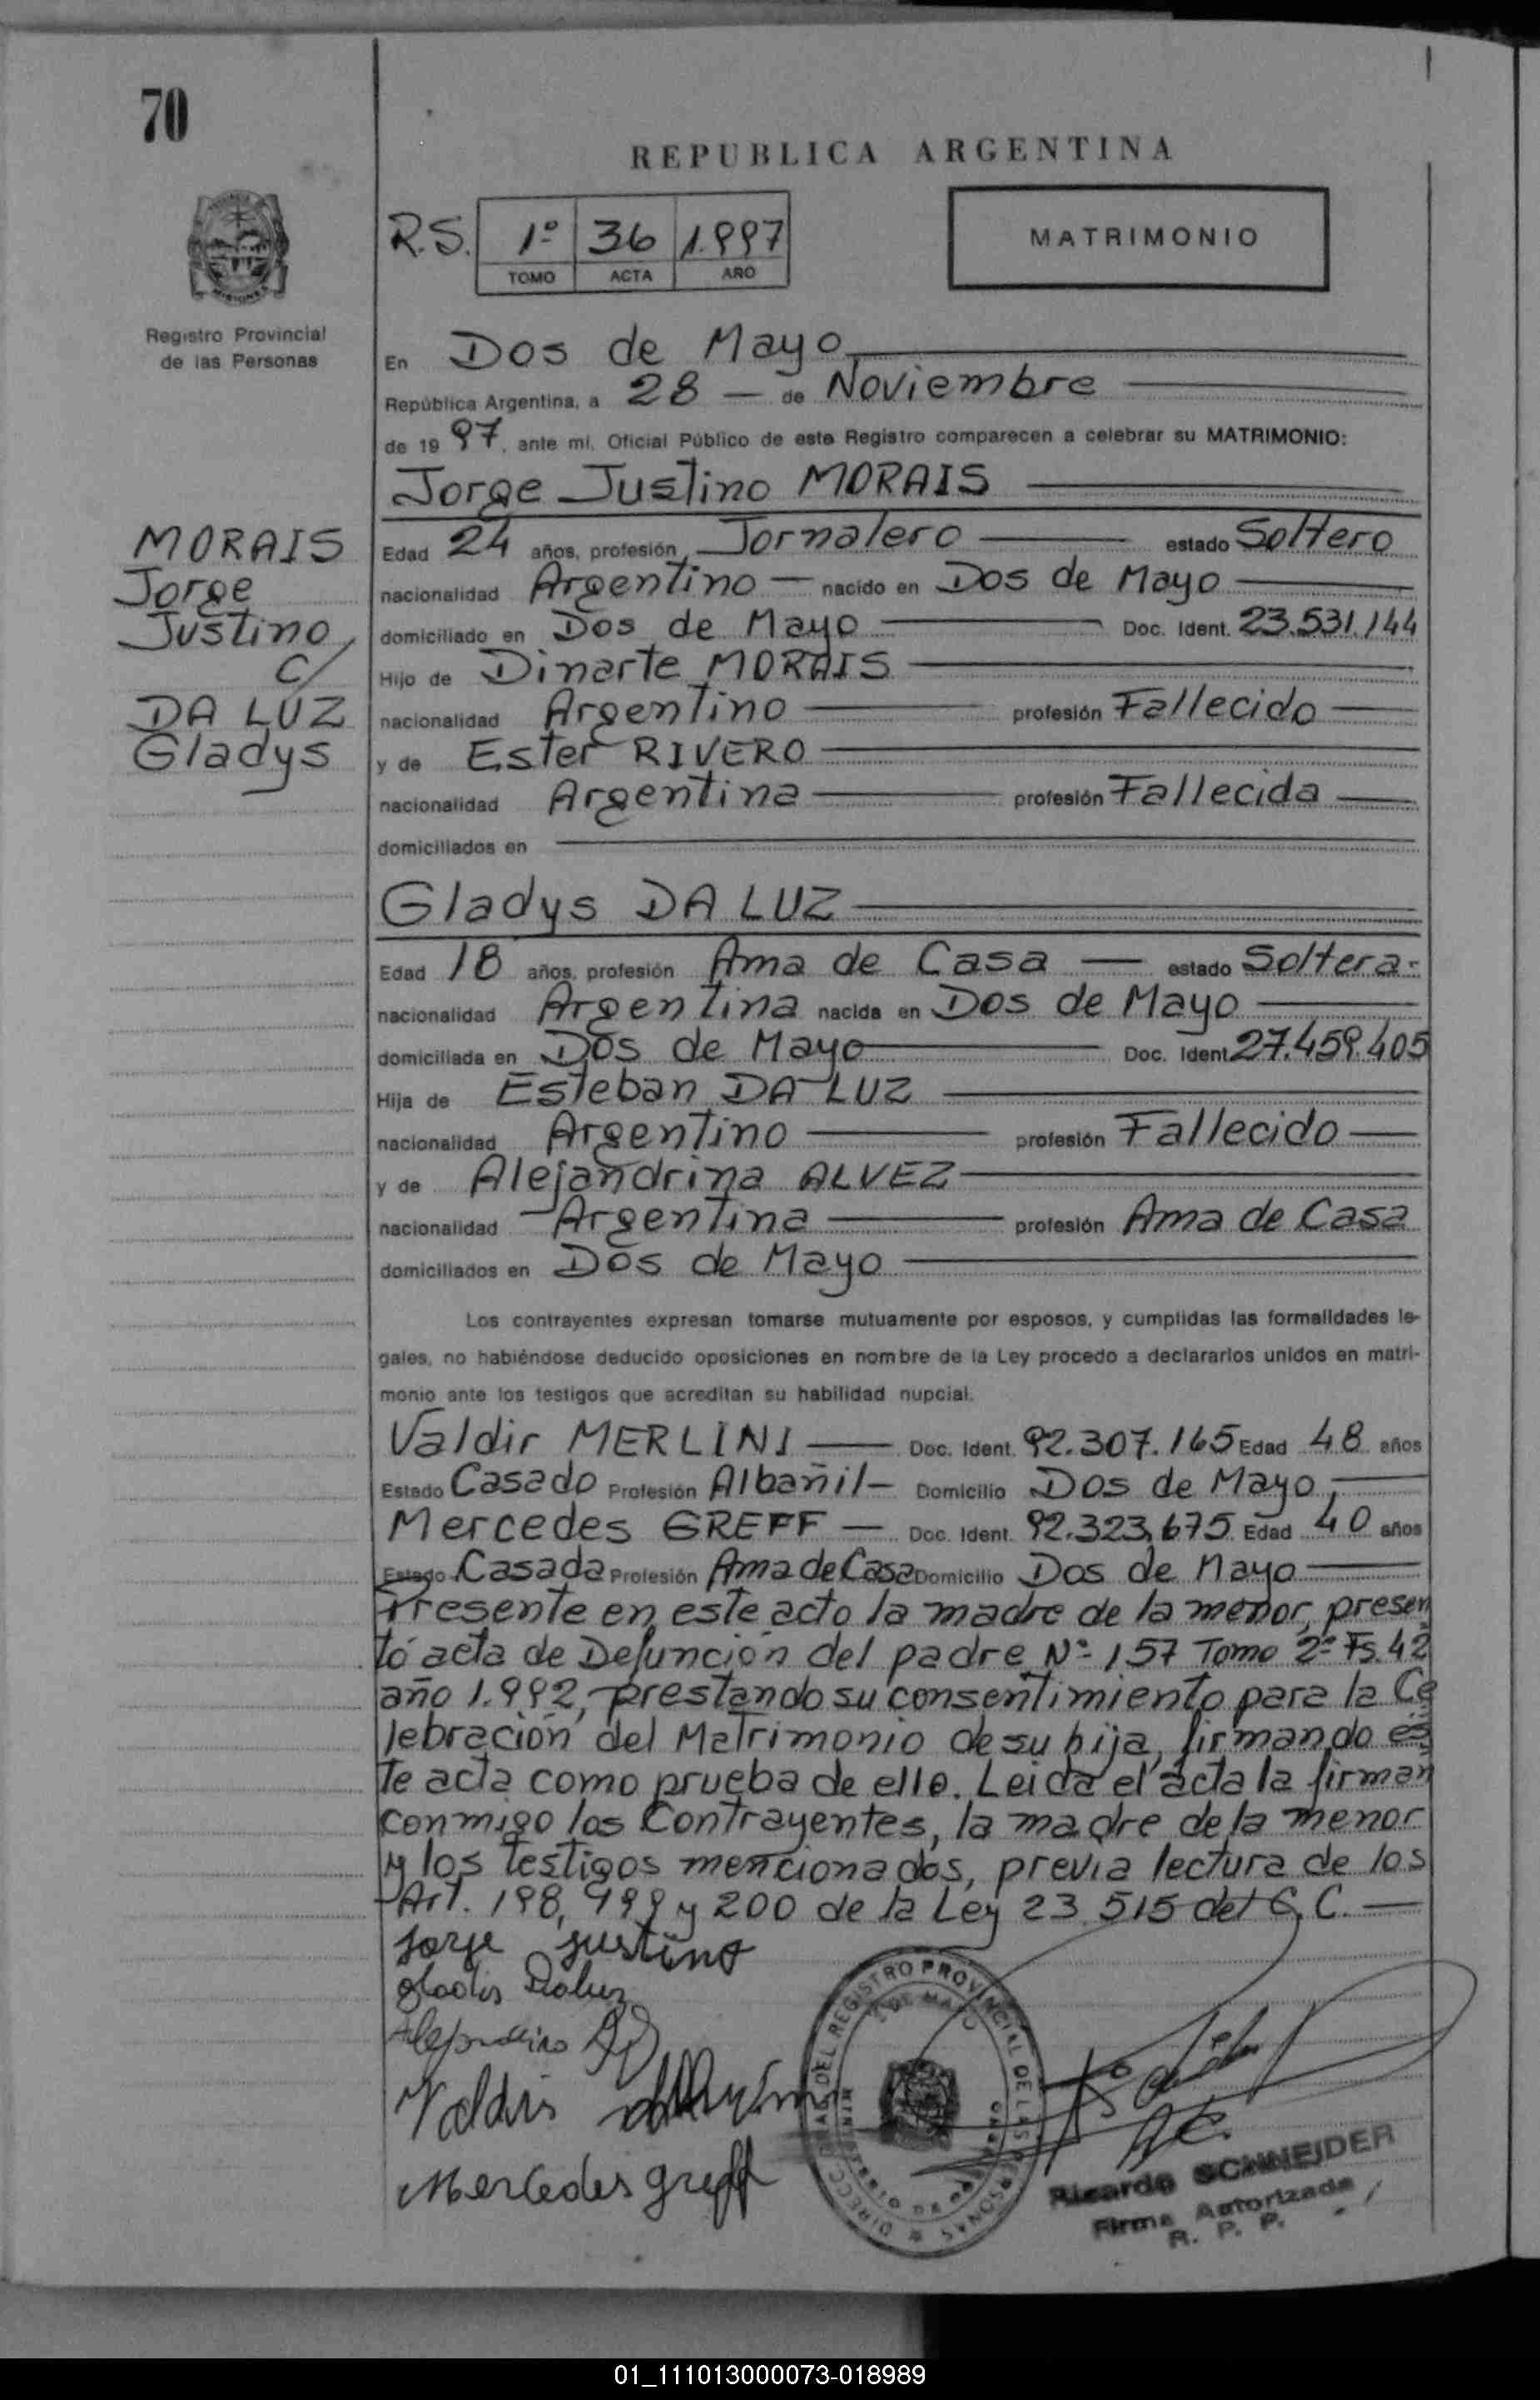 70
REPUBLICA ARGENTINA
R.S. 1º 36 1.997
TOMO ACTA AÑO
MATRIMONIO
Registro Provincial
de las Personas
En Dos de Mayo
República Argentina, a 28 — de Noviembre
de 1997, ante mí, Oficial Público de este Registro comparecen a celebrar su MATRIMONIO:
Jorge Justino MORAIS
MORAIS
Jorge
Justino
C/
DA LUZ
Gladys
Edad 24 años, profesión Jornalero estado Soltero
nacionalidad Argentino — nacido en Dos de Mayo
domiciliado en Dos de Mayo Doc. Ident. 23.531.144
Hijo de Dinarte MORAIS
nacionalidad Argentino profesión Fallecido
y de Ester RIVERO
nacionalidad Argentina profesión Fallecida
domiciliados en
Gladys DA LUZ
Edad 18 años, profesión Ama de Casa — estado Soltera-
nacionalidad Argentina nacida en Dos de Mayo
domiciliada en Dos de Mayo Doc. Ident. 27.459.405
Hija de Esteban DA LUZ
nacionalidad Argentino profesión Fallecido
y de Alejandrina ALVEZ
nacionalidad Argentina profesión Ama de Casa
domiciliados en Dos de Mayo
Los contrayentes expresan tomarse mutuamente por esposos, y cumplidas las formalidades le-
gales, no habiéndose deducido oposiciones en nombre de la Ley procedo a declararlos unidos en matri-
monio ante los testigos que acreditan su habilidad nupcial.
Valdir MERLINI — Doc. Ident. 92.307.165 Edad 48 años
Estado Casado Profesión Albañil — Domicilio Dos de Mayo,
Mercedes GREFF — Doc. Ident. 92.323,675 Edad 40 años
Estado Casada Profesión Ama de Casa Domicilio Dos de Mayo
Presente en este acto la madre de la menor, presen
tó acta de Defunción del padre Nº 157 Tomo 2º Fs. 42
año 1.992, prestando su consentimiento para la Ce
lebración del Matrimonio de su hija, firmando es
te acta como prueba de ello. Leida el acta la firman
conmigo los Contrayentes, la madre de la menor
y los testigos mencionados, previa lectura de los
Art. 198, 199 y 200 de la Ley 23.515 del C.C. —
Jorge Justino
Gladis Daluz
Valdir
Mercedes greff
DIRECC. GRAL. DEL REGISTRO PROVINCIAL DE LAS PERSONAS
Ricardo SCHNEIDER
Firma Autorizada
R. P. P.
01_111013000073-018989